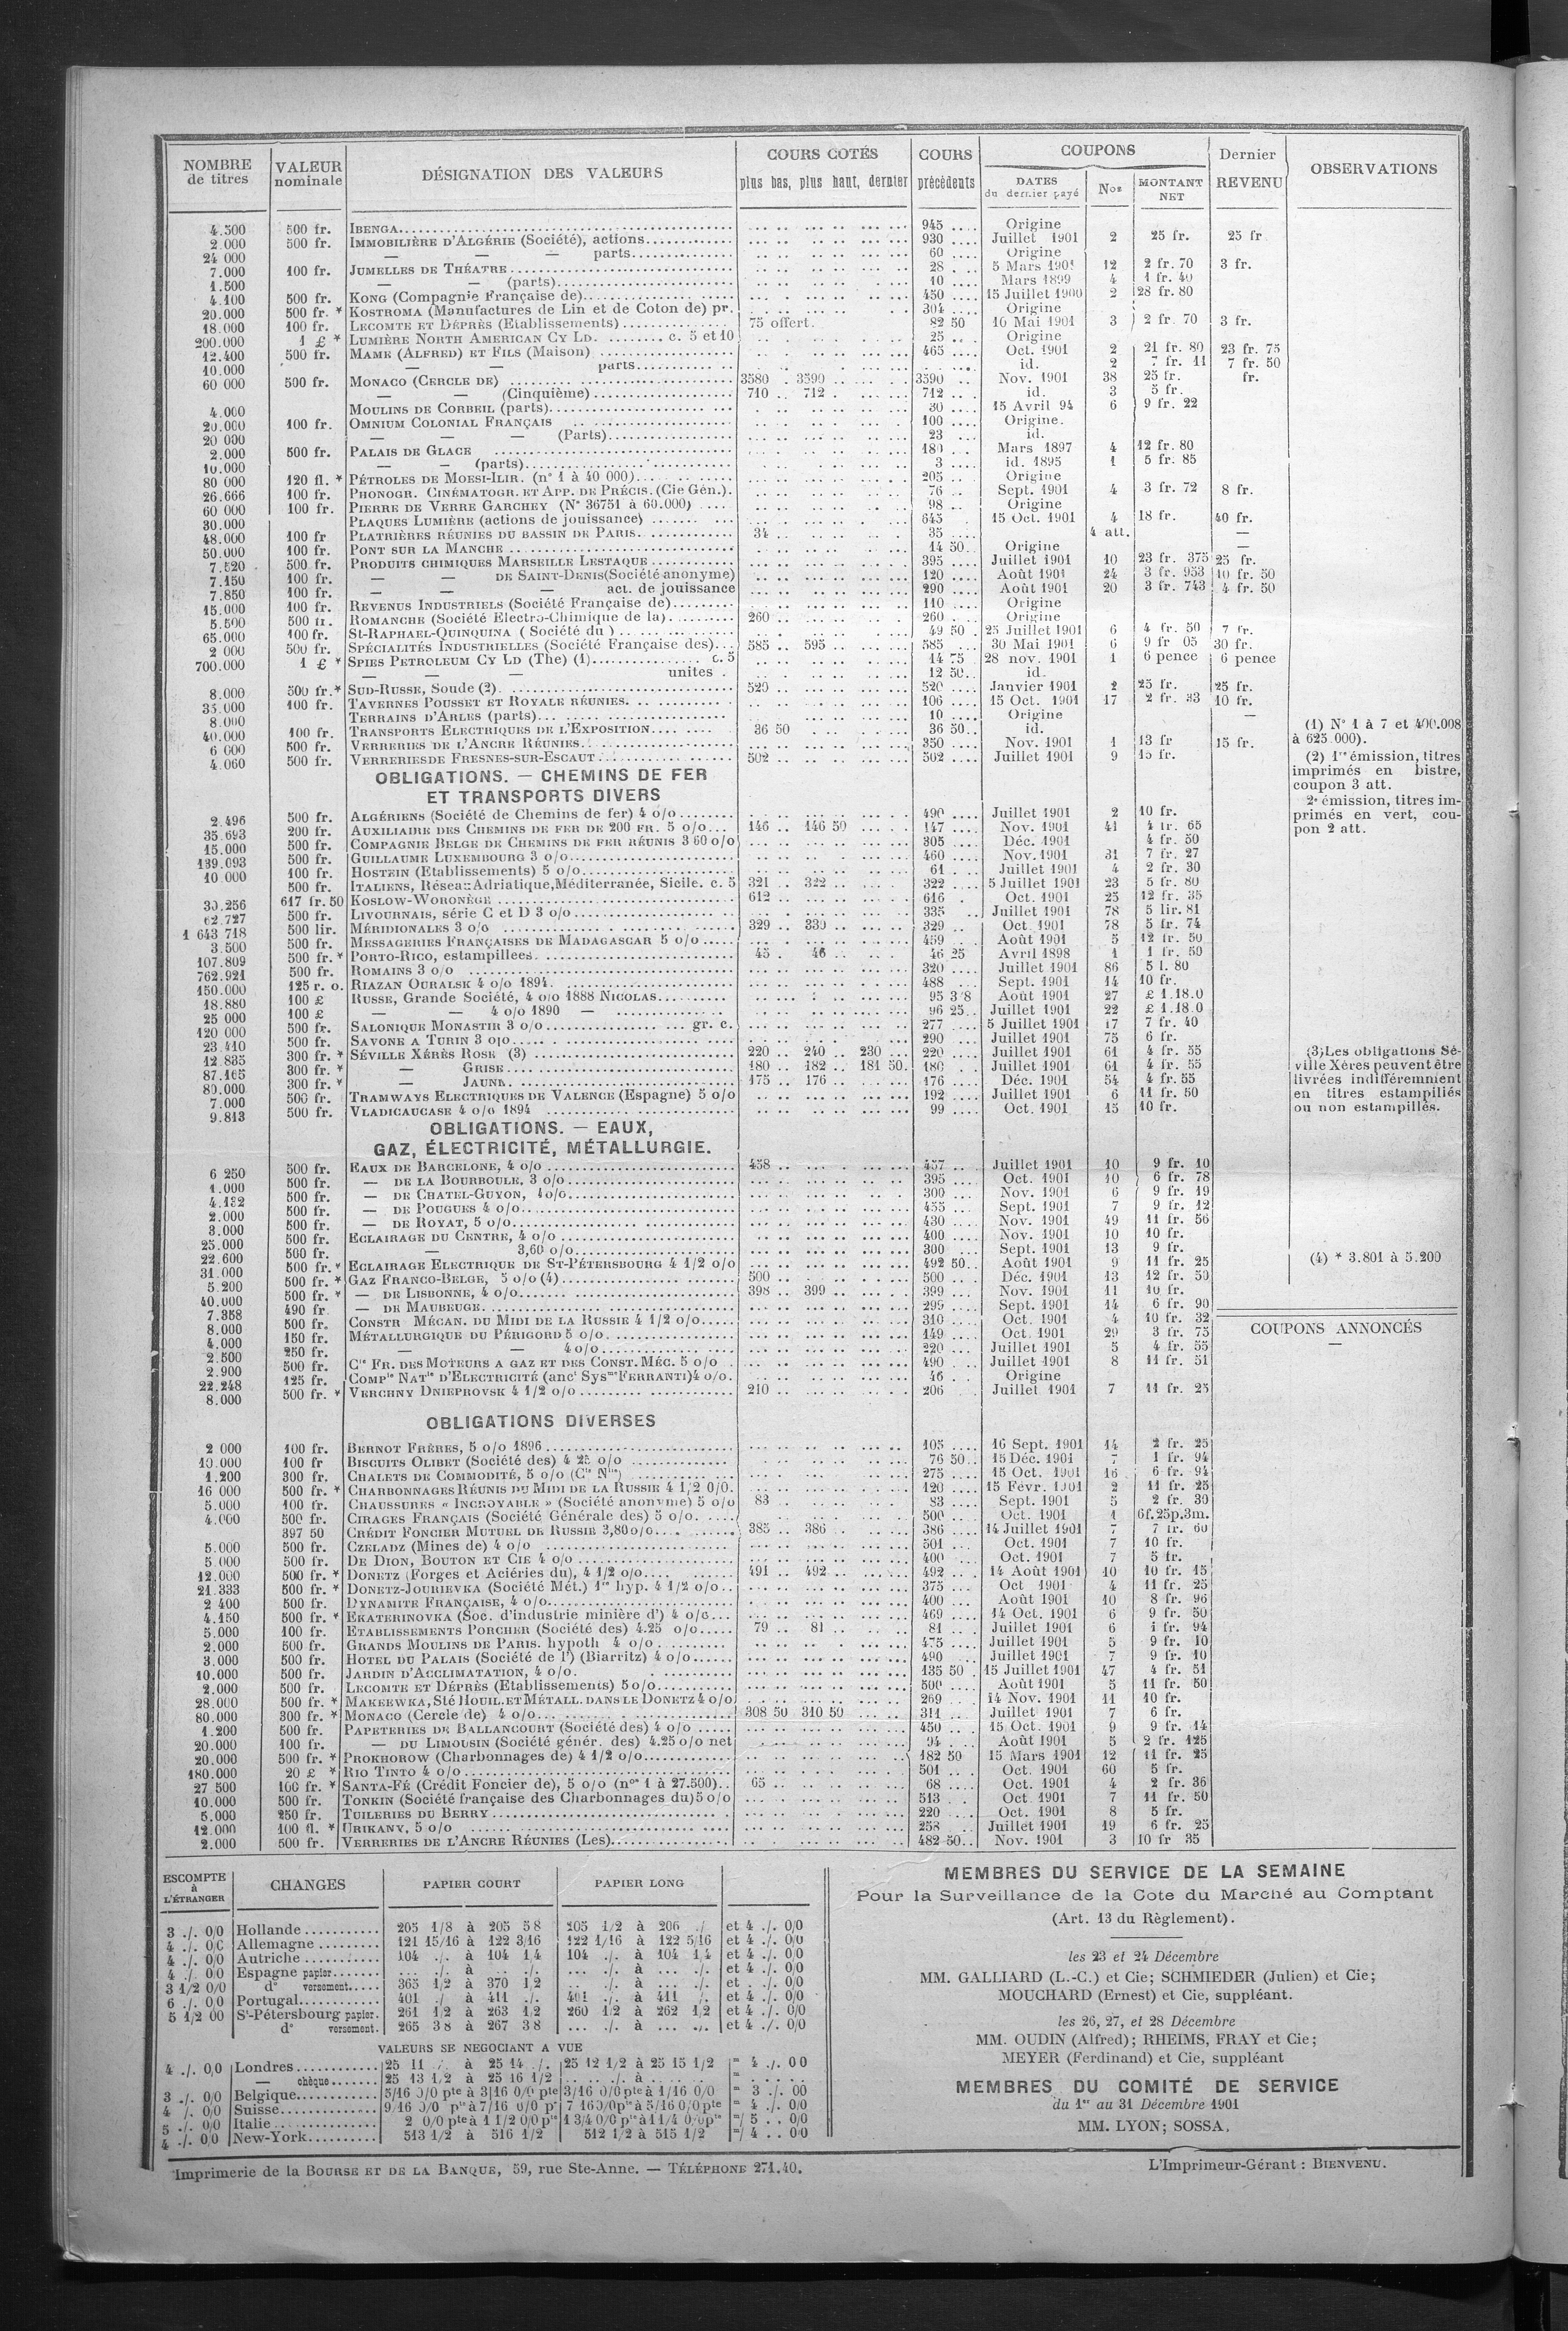 NOMBRE de titres | VALEUR nominale | DÉSIGNATION DES VALEURS | COURS COTÉS plus bas, plus haut, dernier | COURS précédents | COUPONS DATES du dernier payé | Nos | MONTANT NET | Dernier REVENU | OBSERVATIONS
4.500 500 fr. IBENGA 945 Origine
2.000 500 fr. IMMOBILIÈRE D'ALGÉRIE (Société), actions 930 Juillet 1901 2 25 fr. 25 fr
24 000 — — — parts 60 Origine
7.000 100 fr. JUMELLES DE THÉATRE 28 5 Mars 1901 12 2 fr. 70 3 fr.
1.500 — — (parts) 10 Mars 1899 4 1 fr. 40
4.100 500 fr. KONG (Compagnie Française de) 450 15 Juillet 1900 2 28 fr. 80
20.000 500 fr. * KOSTROMA (Manufactures de Lin et de Coton de) pr. 304 Origine
18.000 100 fr. LECOMTE ET DÉPRÈS (Etablissements) 75 offert. 82 50 16 Mai 1901 3 2 fr. 70 3 fr.
200.000 1 £ * LUMIÈRE NORTH AMERICAN CY LD. c. 5 et 10 25 Origine
12.400 500 fr. MAME (ALFRED) ET FILS (Maison) 465 Oct. 1901 2 21 fr. 80 23 fr. 75
10.000 — — parts id. 2 7 fr. 11 7 fr. 50
60 000 500 fr. MONACO (CERCLE DE) 3580 3590 3590 Nov. 1901 38 25 fr. fr.
— — (Cinquième) 710 712 712 id. 3 5 fr.
4.000 MOULINS DE CORBEIL (parts) 30 15 Avril 94 6 9 fr. 22
20.000 100 fr. OMNIUM COLONIAL FRANÇAIS 100 Origine.
20 000 — — — (Parts) 23 id.
2.000 500 fr. PALAIS DE GLACE 180 Mars 1897 4 12 fr. 80
10.000 — — (parts) 3 id. 1895 1 5 fr. 85
80 000 120 fl. * PÉTROLES DE MOESI-ILIR. (n° 1 à 40 000) 205 Origine
26.666 100 fr. PHONOGR. CINÉMATOGR. ET APP. DE PRÉCIS. (Cie Gén.). 76 Sept. 1901 4 3 fr. 72 8 fr.
60 000 100 fr. PIERRE DE VERRE GARCHEY (N° 36751 à 60.000) 98 Origine
30.000 PLAQUES LUMIÈRE (actions de jouissance) 645 15 Oct. 1901 4 18 fr. 40 fr.
48.000 100 fr PLATRIÈRES RÉUNIES DU BASSIN DE PARIS 34 35 4 att. —
50.000 100 fr. PONT SUR LA MANCHE 14 50 Origine —
7.520 500 fr. PRODUITS CHIMIQUES MARSEILLE LESTAQUE 395 Juillet 1901 10 23 fr. 375 25 fr.
7.150 100 fr. — — DE SAINT-DENIS (Société anonyme) 120 Août 1901 24 3 fr. 953 10 fr. 50
7.850 100 fr. — — — act. de jouissance 290 Août 1901 20 3 fr. 743 4 fr. 50
15.000 100 fr. REVENUS INDUSTRIELS (Société Française de) 110 Origine
5.500 500 fr. ROMANCHE (Société Electro-Chimique de la) 260 260 Origine
65.000 100 fr. St-RAPHAEL-QUINQUINA (Société du) 49 50 25 Juillet 1901 6 4 fr. 50 7 fr.
2 000 500 fr. SPÉCIALITÉS INDUSTRIELLES (Société Française des) 585 595 585 30 Mai 1901 6 9 fr 05 30 fr.
700.000 1 £ * SPIES PETROLEUM CY LD (The) (1) c. 5 14 75 28 nov. 1901 1 6 pence 6 pence
— — — unites 12 50 id.
8.000 500 fr.* SUD-RUSSE, Soude (2). 520 520 Janvier 1901 2 25 fr. 25 fr.
35.000 100 fr. TAVERNES POUSSET ET ROYALE RÉUNIES. 106 15 Oct. 1901 17 2 fr. 33 10 fr.
8.000 TERRAINS D'ARLES (parts) 10 Origine —
40.000 100 fr. TRANSPORTS ELECTRIQUES DE L'EXPOSITION 36 50 36 50 id.
6 000 500 fr. VERRERIES DE L'ANCRE RÉUNIES 350 Nov. 1901 1 13 fr 15 fr.
4.060 500 fr. VERRERIES DE FRESNES-SUR-ESCAUT 502 502 Juillet 1901 9 15 fr.
(1) N° 1 à 7 et 400.008
à 625.000).
(2) 1re émission, titres
imprimés en bistre,
coupon 3 att.
2e émission, titres im-
primés en vert, cou-
pon 2 att.
OBLIGATIONS. — CHEMINS DE FER
ET TRANSPORTS DIVERS
2.496 500 fr. ALGÉRIENS (Société de Chemins de fer) 4 o/o 490 Juillet 1901 2 10 fr.
35.693 200 fr. AUXILIAIRE DES CHEMINS DE FER DE 200 FR. 5 o/o 146 146 50 147 Nov. 1901 41 4 fr. 65
15.000 500 fr. COMPAGNIE BELGE DE CHEMINS DE FER RÉUNIS 3 60 o/o 305 Déc. 1901 4 fr. 50
139.093 500 fr. GUILLAUME LUXEMBOURG 3 o/o 460 Nov. 1901 31 7 fr. 27
10 000 100 fr. HOSTEIN (Etablissements) 5 o/o 61 Juillet 1901 4 2 fr. 30
500 fr. ITALIENS, Réseau Adriatique, Méditerranée, Sicile. c. 5 321 322 322 5 Juillet 1901 23 5 fr. 80
30.256 617 fr. 50 KOSLOW-WORONÈGE 612 616 Oct. 1901 25 12 fr. 35
62.727 500 fr. LIVOURNAIS, série C et D 3 o/o 335 Juillet 1901 78 5 lir. 81
1 643 718 500 lir. MÉRIDIONALES 3 o/o 329 330 329 Oct. 1901 78 5 fr. 74
3.500 500 fr. MESSAGERIES FRANÇAISES DE MADAGASCAR 5 o/o 459 Août 1901 5 12 fr. 50
107.809 500 fr. * PORTO-RICO, estampillees 45 46 46 25 Avril 1898 1 1 fr. 50
762.921 500 fr. ROMAINS 3 o/o 320 Juillet 1901 86 5 l. 80
150.000 125 r. o. RIAZAN OURALSK 4 o/o 1894. 488 Sept. 1901 14 10 fr.
18.880 100 £ RUSSE, Grande Société, 4 o/o 1888 NICOLAS 95 3/8 Août 1901 27 £ 1.18.0
25 000 100 £ — — 4 o/o 1890 — 96 25 Juillet 1901 22 £ 1.18.0
120 000 500 fr. SALONIQUE MONASTIR 3 o/o gr. c. 277 5 Juillet 1901 17 7 fr. 40
23.410 500 fr. SAVONE A TURIN 3 o/o 290 Juillet 1901 75 6 fr.
12 835 300 fr. * SÉVILLE XÉRÈS ROSE (3) 220 240 230 220 Juillet 1901 61 4 fr. 55
87.165 300 fr. * — GRISE 180 182 181 50 180 Juillet 1901 61 4 fr. 55
80.000 300 fr. * — JAUNE 175 176 176 Déc. 1901 54 4 fr. 55
7.000 500 fr. TRAMWAYS ELECTRIQUES DE VALENCE (Espagne) 5 o/o 192 Juillet 1901 6 11 fr. 50
9.813 500 fr. VLADICAUCASE 4 o/o 1894 99 Oct. 1901 15 10 fr.
(3) Les obligations Sé-
ville Xérès peuvent être
livrées indifféremment
en titres estampillés
ou non estampillés.
OBLIGATIONS. — EAUX,
GAZ, ÉLECTRICITÉ, MÉTALLURGIE.
6 250 500 fr. EAUX DE BARCELONE, 4 o/o 458 457 Juillet 1901 10 9 fr. 10
1.000 500 fr. — DE LA BOURBOULE, 3 o/o 395 Oct. 1901 10 6 fr. 78
4.132 500 fr. — DE CHATEL-GUYON, 4 o/o 300 Nov. 1901 6 9 fr. 19
2.000 500 fr. — DE POUGUES 4 o/o 455 Sept. 1901 7 9 fr. 12
3.000 500 fr. — DE ROYAT, 5 o/o 430 Nov. 1901 49 11 fr. 56
25.000 500 fr. ECLAIRAGE DU CENTRE, 4 o/o 400 Nov. 1901 10 10 fr.
22.600 500 fr. — 3,60 o/o 300 Sept. 1901 13 9 fr.
31.000 500 fr. * ECLAIRAGE ELECTRIQUE DE ST-PÉTERSBOURG 4 1/2 o/o 492 50 Août 1901 9 11 fr. 25
5.200 500 fr. * GAZ FRANCO-BELGE, 5 o/o (4) 500 500 Déc. 1901 13 12 fr. 50
40.000 500 fr. * — DE LISBONNE, 4 o/o 398 399 399 Nov. 1901 11 10 fr.
7.358 490 fr — DE MAUBEUGE 299 Sept. 1901 14 6 fr. 90
8.000 500 fr. CONSTR MÉCAN. DU MIDI DE LA RUSSIE 4 1/2 o/o 310 Oct. 1901 4 10 fr. 32
4.000 150 fr. MÉTALLURGIQUE DU PÉRIGORD 5 o/o 149 Oct. 1901 29 3 fr. 75
2.500 250 fr. — — 4 o/o 220 Juillet 1901 5 4 fr. 55
2.900 500 fr. Cie FR. DES MOTEURS A GAZ ET DES CONST. MÉC. 5 o/o 490 Juillet 1901 8 11 fr. 51
22.248 125 fr. COMPie NATle D'ELECTRICITÉ (anct Sysme FERRANTI) 4 o/o. 46 Origine
8.000 500 fr. * VERCHNY DNIEPROVSK 4 1/2 o/o 210 206 Juillet 1901 7 11 fr. 25
(4) * 3.801 à 5.200
COUPONS ANNONCÉS
—
OBLIGATIONS DIVERSES
2 000 100 fr. BERNOT FRÈRES, 5 o/o 1896 105 16 Sept. 1901 14 2 fr. 25
10.000 100 fr BISCUITS OLIBET (Société des) 4 25 o/o 76 50 15 Déc. 1901 7 1 fr. 94
1.200 300 fr. CHALETS DE COMMODITÉ, 5 o/o (Cie Nlle) 275 15 Oct. 1901 16 6 fr. 94
16 000 500 fr. * CHARBONNAGES RÉUNIS DU MIDI DE LA RUSSIE 4 1/2 0/0. 120 15 Févr. 1901 2 11 fr. 25
5.000 100 fr. CHAUSSURES « INCROYABLE » (Société anonyme) 5 o/o 83 83 Sept. 1901 5 2 fr. 30
4.000 500 fr. CIRAGES FRANÇAIS (Société Générale des) 5 o/o. 500 Oct. 1901 1 6f.25p.3m.
397 50 CRÉDIT FONCIER MUTUEL DE RUSSIE 3,80 o/o 385 386 386 14 Juillet 1901 7 7 fr. 60
5.000 500 fr. CZELADZ (Mines de) 4 o/o 501 Oct. 1901 7 10 fr.
5.000 500 fr. DE DION, BOUTON ET CIE 4 o/o 400 Oct. 1901 7 5 fr.
12.000 500 fr. * DONETZ (Forges et Aciéries du), 4 1/2 o/o 491 492 492 14 Août 1901 10 10 fr. 15
21.333 500 fr. * DONETZ-JOURIEVKA (Société Mét.) 1re hyp. 4 1/2 o/o 375 Oct 1901 4 11 fr. 25
2 400 500 fr. DYNAMITE FRANÇAISE, 4 o/o 400 Août 1901 10 8 fr. 96
4.150 500 fr. * EKATERINOVKA (Soc. d'industrie minière d') 4 o/o 469 14 Oct. 1901 6 9 fr. 50
5.000 100 fr. ETABLISSEMENTS PORCHER (Société des) 4.25 o/o 79 81 81 Juillet 1901 6 1 fr. 94
2.000 500 fr. GRANDS MOULINS DE PARIS. hypoth 4 o/o 475 Juillet 1901 5 9 fr. 10
3.000 500 fr. HOTEL DU PALAIS (Société de l') (Biarritz) 4 o/o 490 Juillet 1901 7 9 fr. 10
10.000 500 fr. JARDIN D'ACCLIMATATION, 4 o/o. 135 50 15 Juillet 1901 47 4 fr. 51
2.000 500 fr. LECOMTE ET DÉPRÈS (Etablissements) 5 o/o 500 Août 1901 5 11 fr. 50
28.000 500 fr. * MAKEEWKA, Sté HOUIL. ET MÉTALL. DANS LE DONETZ 4 o/o 269 14 Nov. 1901 11 10 fr.
80.000 300 fr. * MONACO (Cercle de) 4 o/o 308 50 310 50 311 Juillet 1901 7 6 fr.
1.200 500 fr. PAPETERIES DE BALLANCOURT (Société des) 4 o/o 450 15 Oct. 1901 9 9 fr. 14
20.000 100 fr. — DU LIMOUSIN (Société génér. des) 4.25 o/o net 94 Août 1901 5 2 fr. 125
20.000 500 fr. * PROKHOROW (Charbonnages de) 4 1/2 o/o 182 50 15 Mars 1901 12 11 fr. 25
180.000 20 £ * RIO TINTO 4 o/o 501 Oct. 1901 60 5 fr.
27 500 100 fr. * SANTA-FÉ (Crédit Foncier de), 5 o/o (nos 1 à 27.500) 65 68 Oct. 1901 4 2 fr. 36
10.000 500 fr. TONKIN (Société française des Charbonnages du) 5 o/o 513 Oct. 1901 7 11 fr. 50
5.000 250 fr. TUILERIES DU BERRY 220 Oct. 1901 8 5 fr.
12.000 100 fl. * URIKANY, 5 o/o 258 Juillet 1901 19 6 fr. 25
2.000 500 fr. VERRERIES DE L'ANCRE RÉUNIES (Les) 482 50 Nov. 1901 3 10 fr 35
ESCOMPTE à L'ÉTRANGER | CHANGES | PAPIER COURT | PAPIER LONG
3 ./. 0/0 Hollande 205 1/8 à 205 5 8 205 1/2 à 206 ./ et 4 ./. 0/0
4 ./. 0/0 Allemagne 121 15/16 à 122 3/16 122 1/16 à 122 5/16 et 4 ./. 0/0
4 ./. 0/0 Autriche 104 ./. à 104 1/4 104 ./. à 104 1/4 et 4 ./. 0 0
4 ./. 0/0 Espagne papier ./. à ./. ./. à ./. et 4 ./. 0/0
3 1/2 0/0 d° versement 365 1/2 à 370 1/2 ./. à ./. et . ./. 0/0
6 ./. 0 0 Portugal 401 ./ à 411 ./. 401 ./. à 411 /. et 4 ./. 0/0
5 1/2 0 0 St-Pétersbourg papier. 261 1/2 à 263 1/2 260 1/2 à 262 1/2 et 4 ./. 0/0
d° versement. 265 3 8 à 267 3 8 ./. à ./. et 4 ./. 0/0
VALEURS SE NEGOCIANT A VUE
4 ./. 0/0 Londres 25 11 /. à 25 14 ./. 25 12 1/2 à 25 15 1/2 — 4 ./. 0 0
— chèque 25 13 1/2 à 25 16 1/2 ./. à
3 ./. 0/0 Belgique 5/16 0/0 pte à 3/16 0/0 pte 3/16 0/0 pte à 1/16 0/0 3 ./. 0 0
4 ./. 0/0 Suisse 9/16 0/0 pte à 7/16 0/0 pte 7 16 0/0 pte à 5/16 0/0 pte 4 ./. 0/0
5 ./. 0/0 Italie 2 0/0 pte à 1 1/2 0/0 pte 1 3/4 0/0 pte à 1 1/4 0/0 pte 5 . . 0/0
4 ./. 0/0 New-York 513 1/2 à 516 1/2 512 1/2 à 515 1/2 4 . . 0 0
MEMBRES DU SERVICE DE LA SEMAINE
Pour la Surveillance de la Cote du Marché au Comptant
(Art. 13 du Règlement).
les 23 et 24 Décembre
MM. GALLIARD (L.-C.) et Cie; SCHMIEDER (Julien) et Cie;
MOUCHARD (Ernest) et Cie, suppléant.
les 26, 27, et 28 Décembre
MM. OUDIN (Alfred); RHEIMS, FRAY et Cie;
MEYER (Ferdinand) et Cie, suppléant
MEMBRES DU COMITÉ DE SERVICE
du 1er au 31 Décembre 1901
MM. LYON; SOSSA.
Imprimerie de la BOURSE ET DE LA BANQUE, 59, rue Ste-Anne. — TÉLÉPHONE 271.40.
L'Imprimeur-Gérant : BIENVENU.